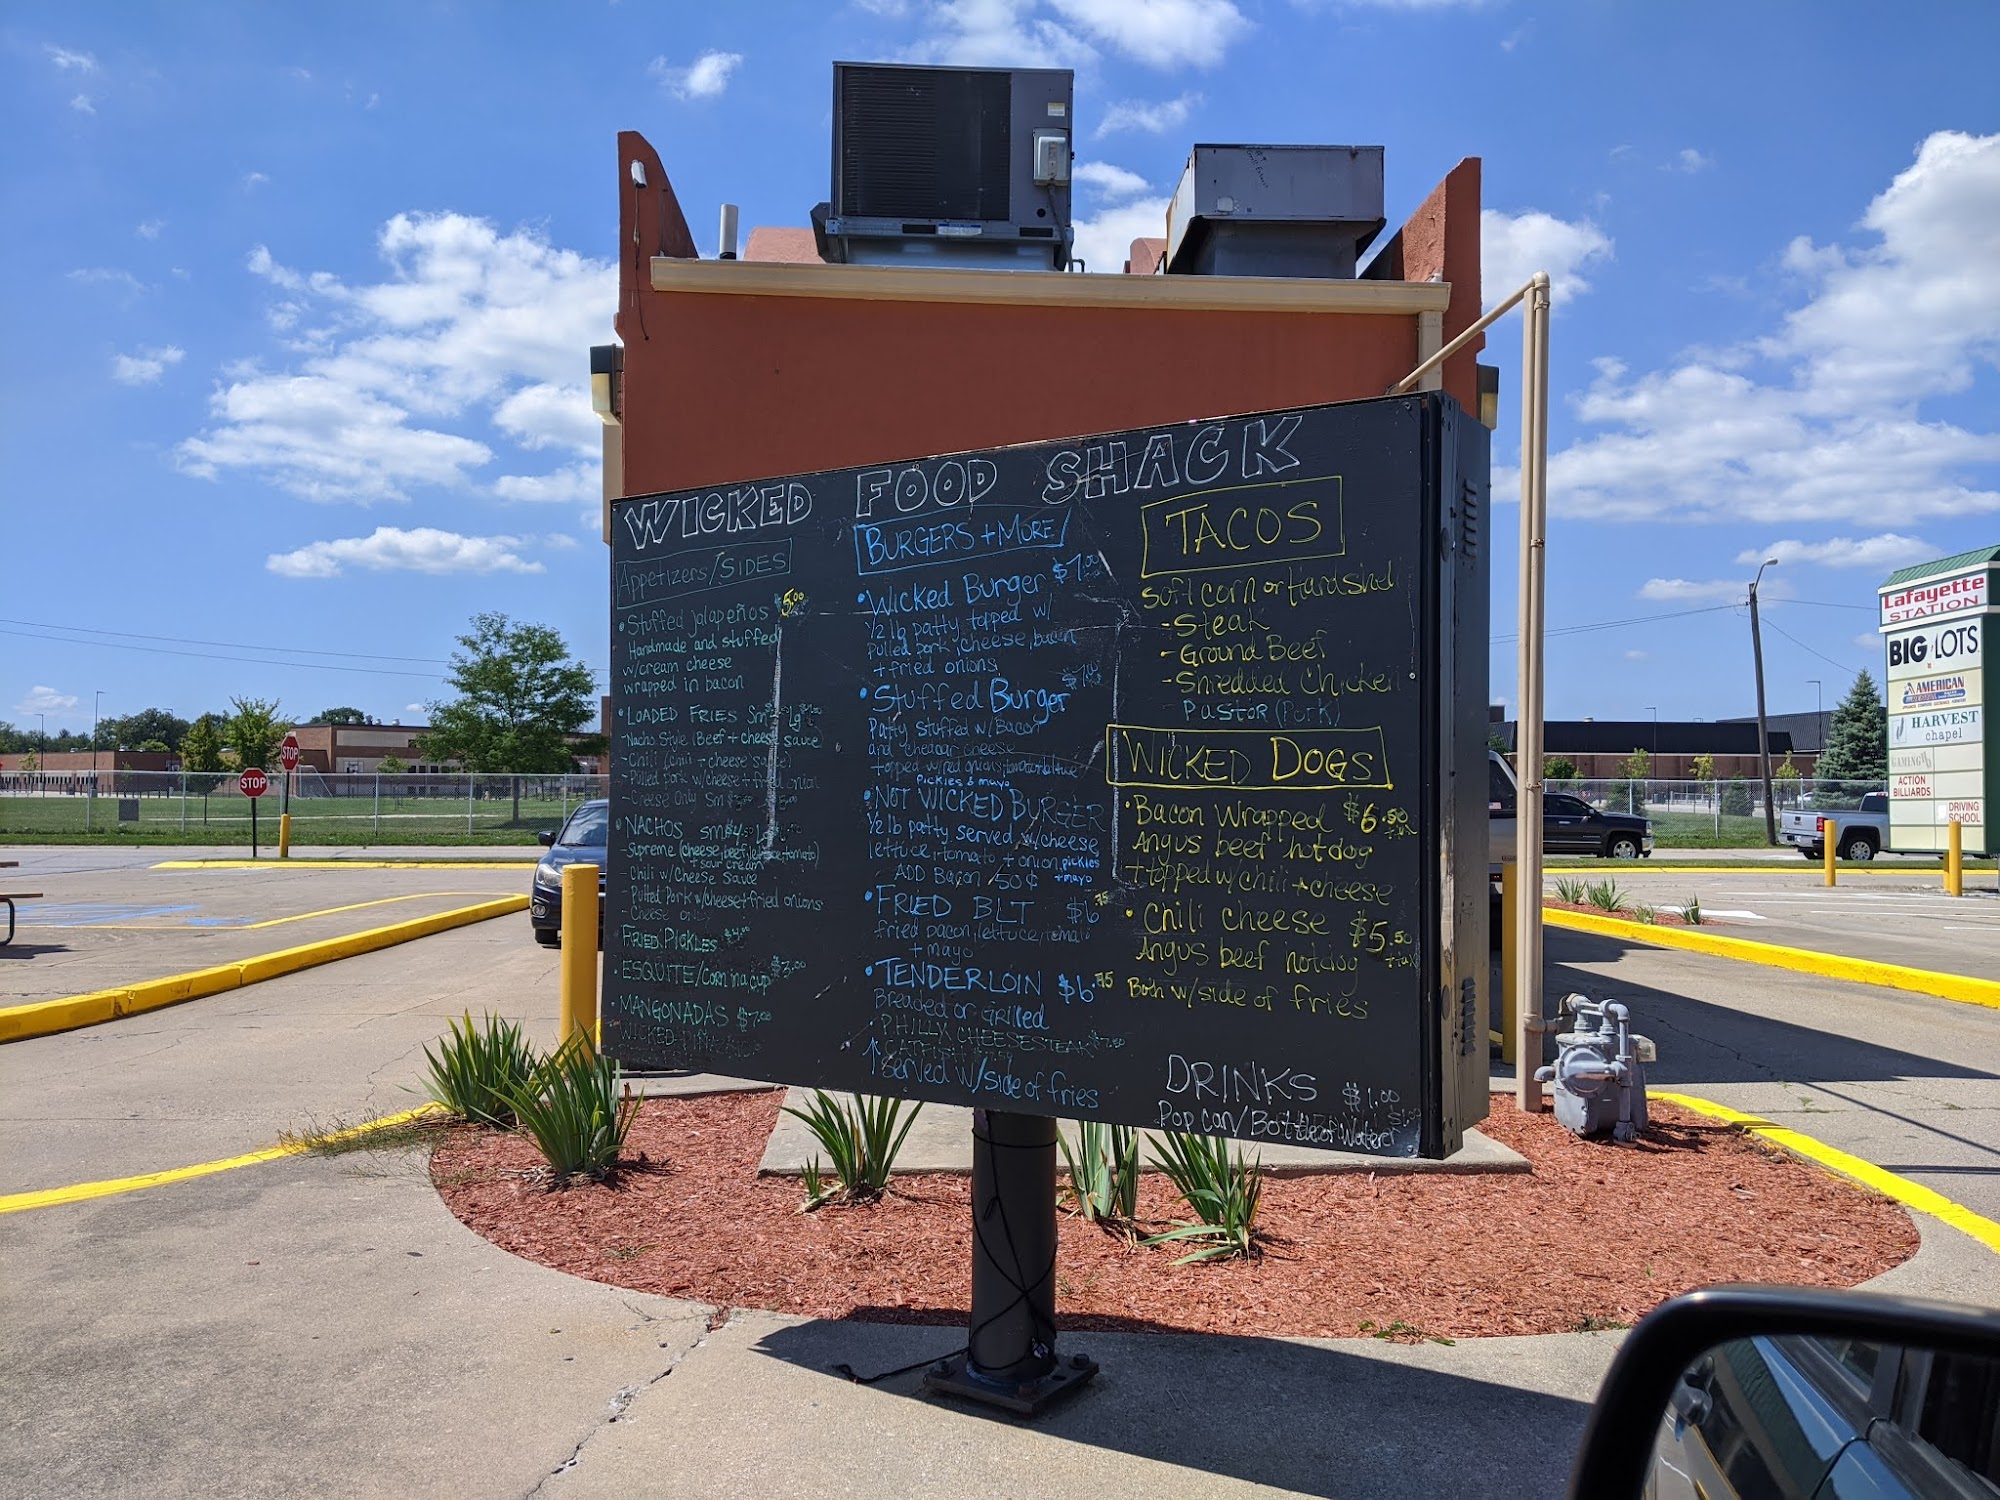 WICKED FOOD SHACK
Appetizers/SIDES
• Stuffed jalapeños $5.00
Handmade and stuffed
w/cream cheese
wrapped in bacon
• LOADED FRIES Sm Lg
- Nacho Style (Beef + cheese sauce
- Chili (chili + cheese sauce)
- Pulled pork w/cheese + fried onions
- Cheese Only Sm
• NACHOS sm $4
- Supreme (cheese, beef, lettuce, tomato)
+ sour cream
- Chili w/Cheese Sauce
- Pulled Pork w/cheese + fried onions
- Cheese ONLY
• FRIED PICKLES
• ESQUITE/Corn in a cup $3.00
• MANGONADAS $7.00
BURGERS + MORE
• Wicked Burger $7.00
1/2 lb patty topped w/
pulled pork, cheese, bacon
+ fried onions
• Stuffed Burger
Patty stuffed w/Bacon
and chedar cheese
topped w/red onions, tomato
Pickles & mayo
• NOT WICKED BURGER
1/2 lb patty served w/cheese
lettuce, tomato + onion, pickles
+ mayo
ADD Bacon 50¢
• FRIED BLT $6.75
fried bacon, lettuce, tomato
+ mayo
• TENDERLOIN $6.75
Breaded or Grilled
• PHILLY CHEESESTEAK
CATFISH
↑ Served w/side of fries
TACOS
Soft corn or Hardshell
- Steak
- Ground Beef
- Shredded Chicken
- Pastor (Pork)
WICKED DOGS
• Bacon Wrapped $6.50
Angus beef hotdog + tax
+ topped w/chili + cheese
• Chili cheese $5.50
Angus beef hotdog + tax
Both w/side of fries
DRINKS $1.00
Pop can/Bottle of Water $1.00
STOP
STOP
Lafayette
STATION
BIG LOTS
AMERICAN
HARVEST
chapel
GAMING
ACTION
BILLIARDS
DRIVING
SCHOOL